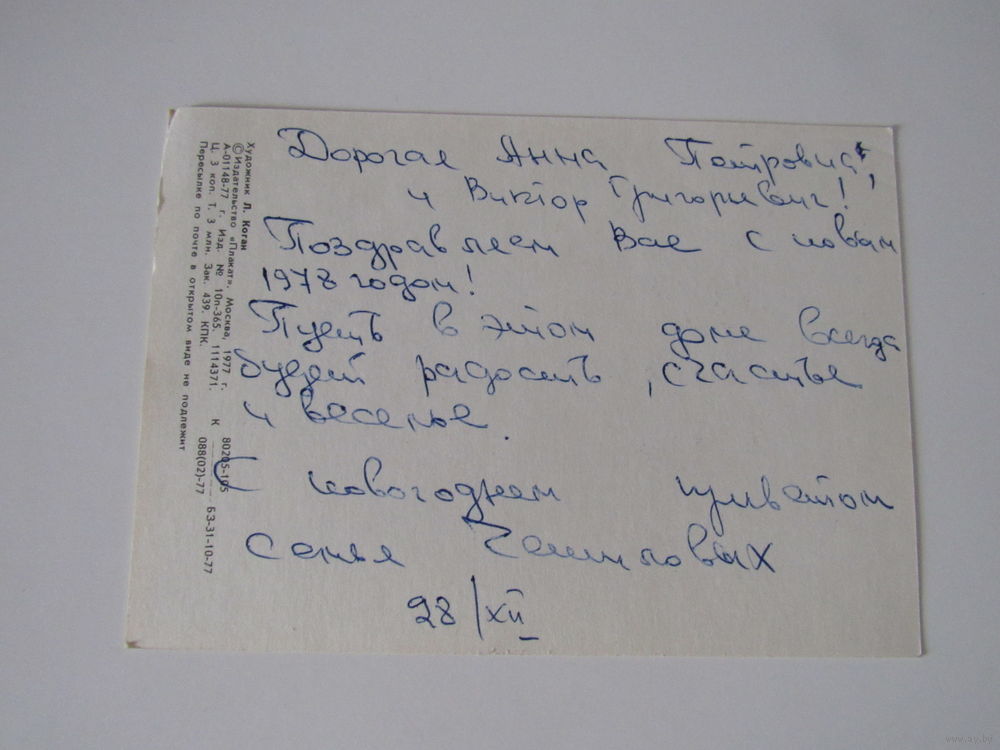 Дорогая Анна Петровна,
и Виктор Григориевич!
Поздравляем Вас с новым
1978 годом!
Пусть в этом доме всегда
будет радость, счастье
и веселье.
С новогодним приветом
семья
28/XII
Художник Л. Коган
© Издательство «Плакат». Москва, 1977 г.
А-01148-77 г. Изд. № 10п-365. 1114371. К 80205-105
Ц. 3 коп. Т. 3 млн. Зак. 439. КПК. 088(02)-77 БЗ-31-10-77
Пересылке по почте в открытом виде не подлежит
www.ay.by